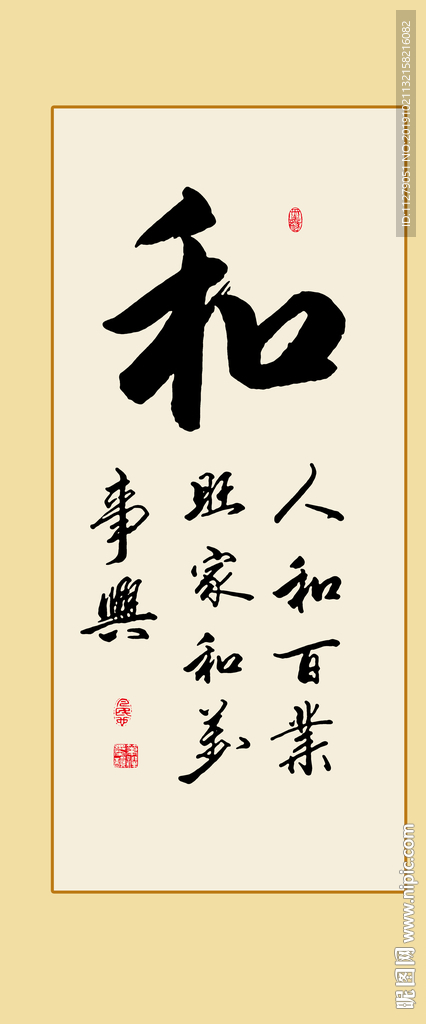 和
人和百業
旺家和萬
事興
ID:11279051 NO:20191021132158216082
昵图网 www.nipic.com